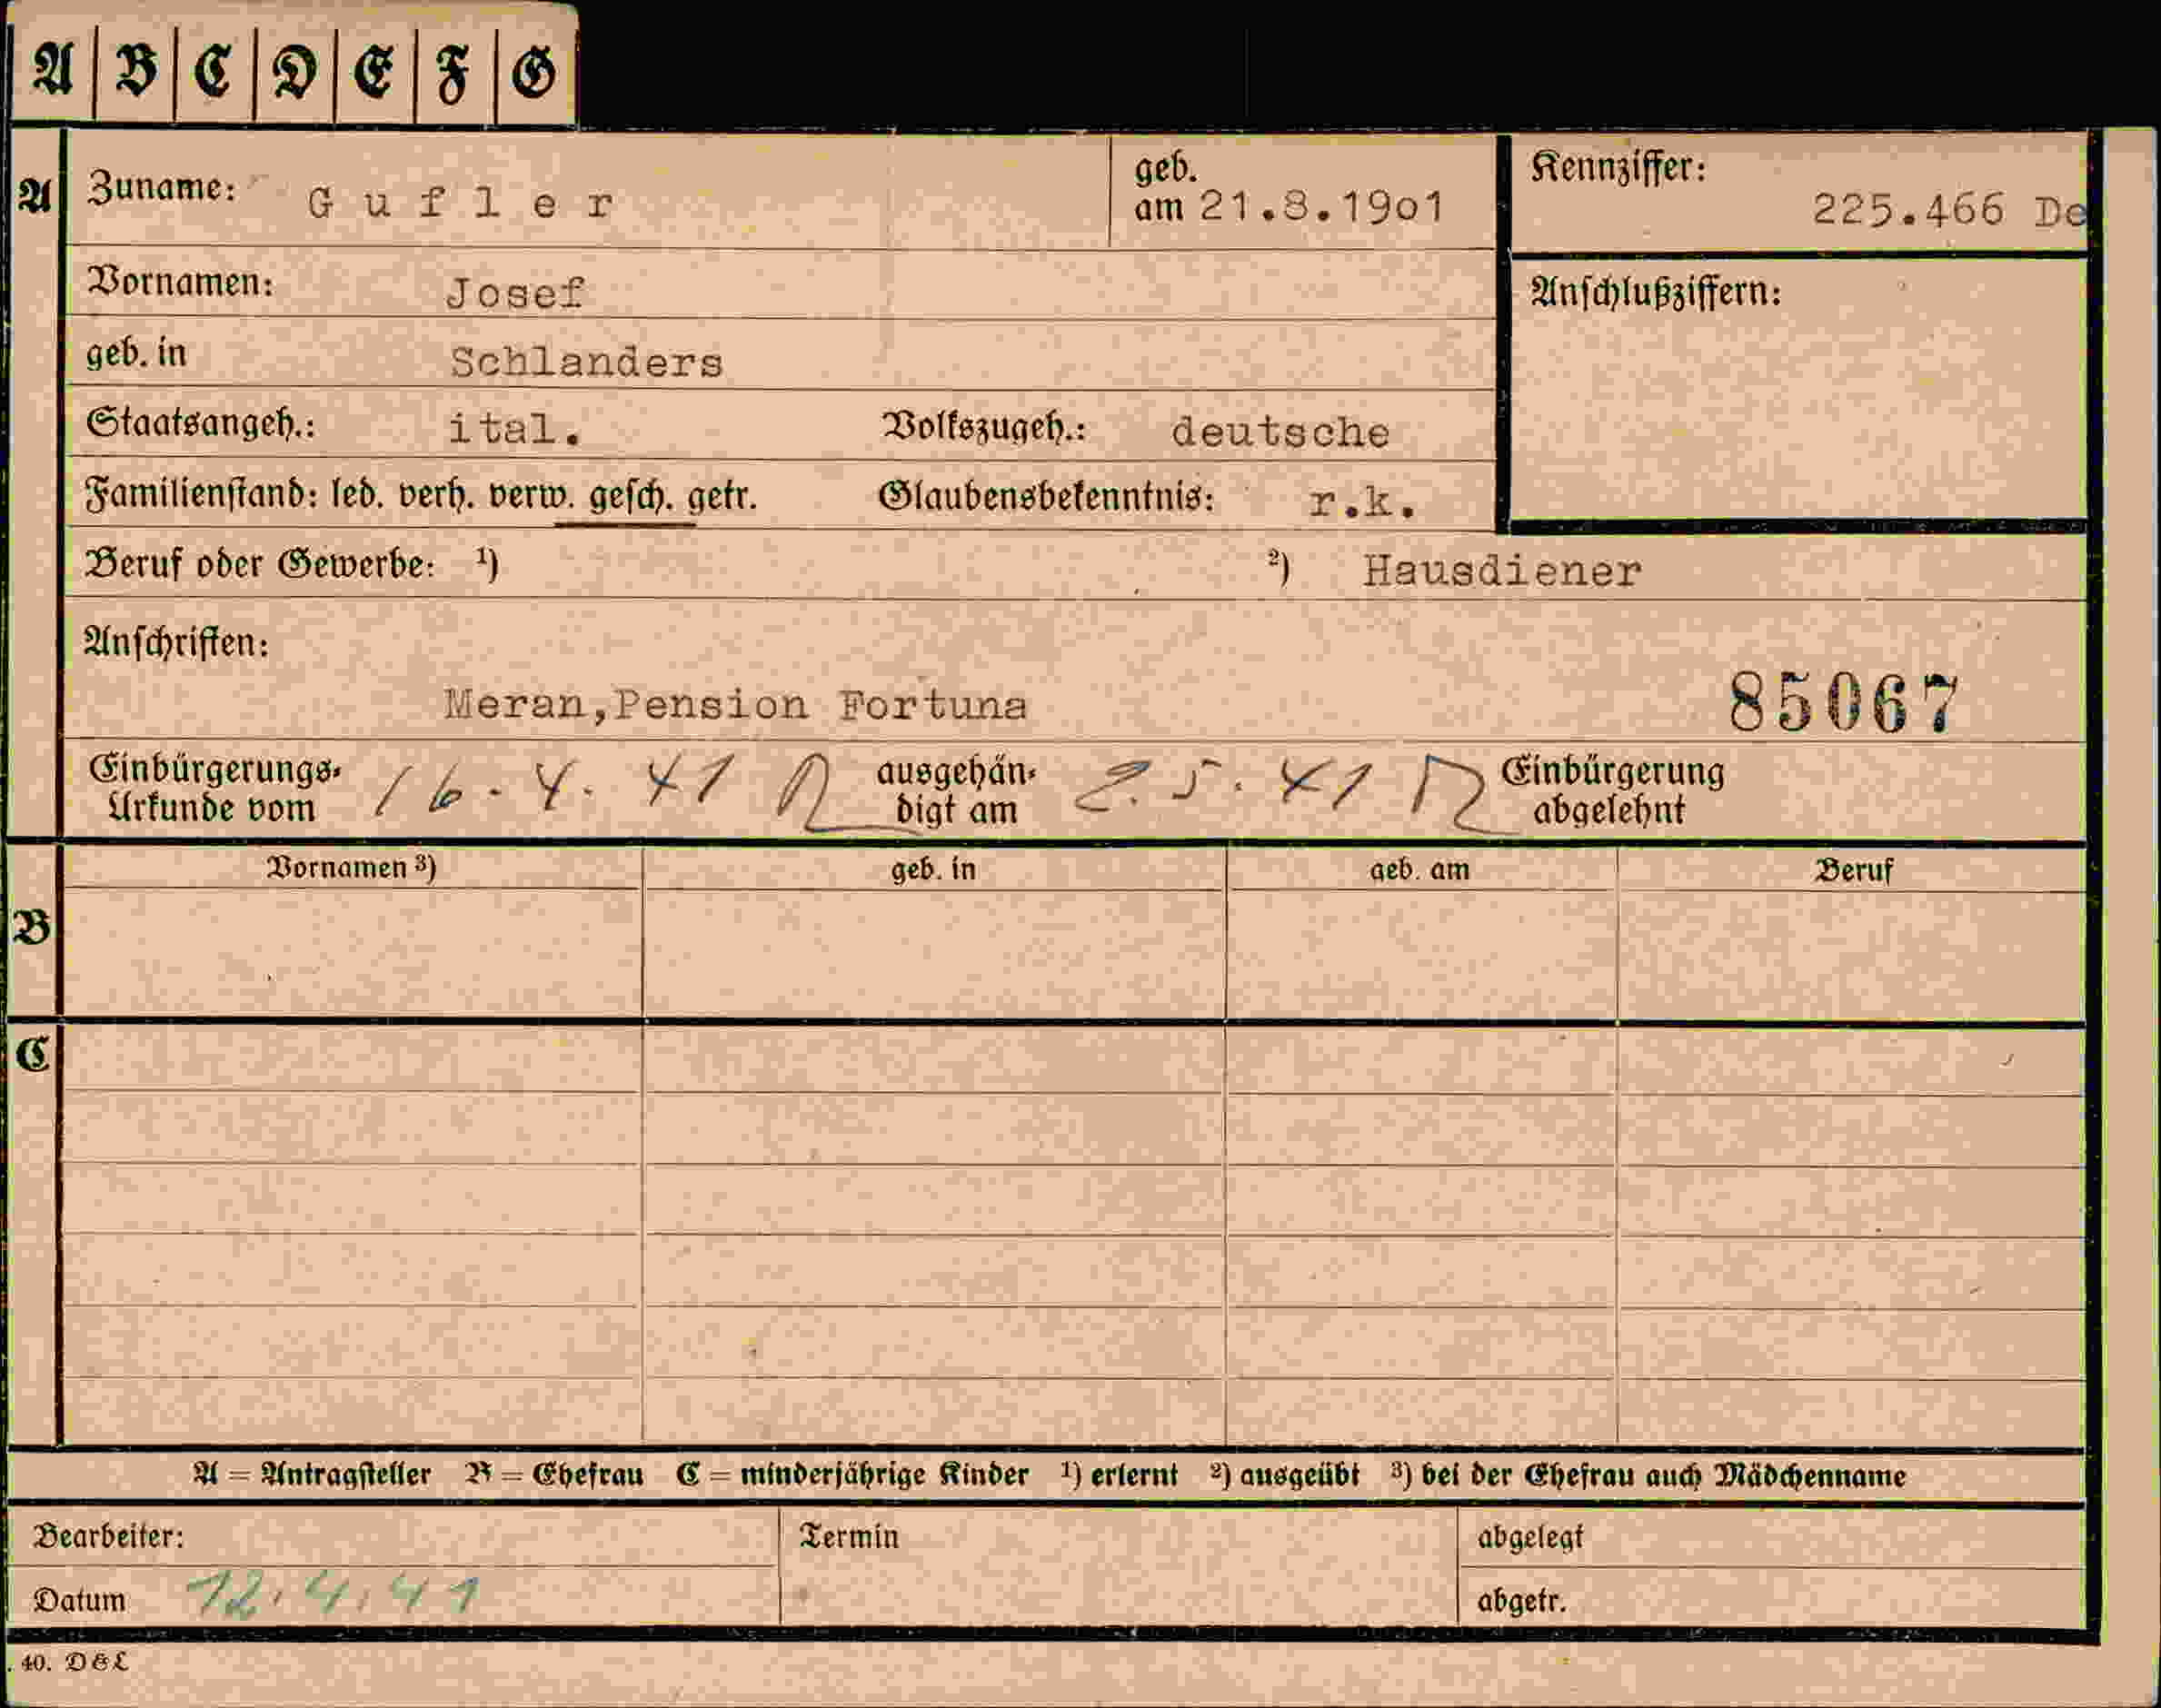 A B C D E F G
A Zuname: Gufler geb. am 21.8.1901 Kennziffer: 225.466 De
Vornamen: Josef Anschlußziffern:
geb. in Schlanders
Staatsangeh.: ital. Volkszugeh.: deutsche
Familienstand: led. verh. verw. gesch. getr. Glaubensbekenntnis: r.k.
Beruf oder Gewerbe: 1) 2) Hausdiener
Anschriften:
Meran,Pension Fortuna 85067
Einbürgerungs-Urkunde vom 16.4.41 ausgehän-digt am 2.5.41 Einbürgerung abgelehnt
Vornamen 3) geb. in geb. am Beruf
B
C
A = Antragsteller B = Ehefrau C = minderjährige Kinder 1) erlernt 2) ausgeübt 3) bei der Ehefrau auch Mädchenname
Bearbeiter: Termin abgelegt
Datum 12.4.41 abgetr.
. 40. D&L